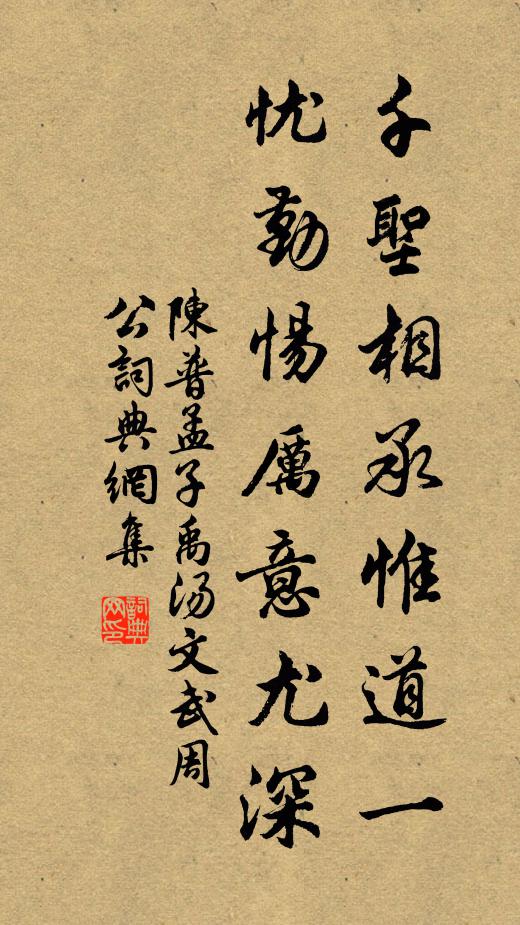 千聖相承惟道一
忧勤惕厲意尤深
陳普孟子禹湯文武周
公詞典網集
詞典网印